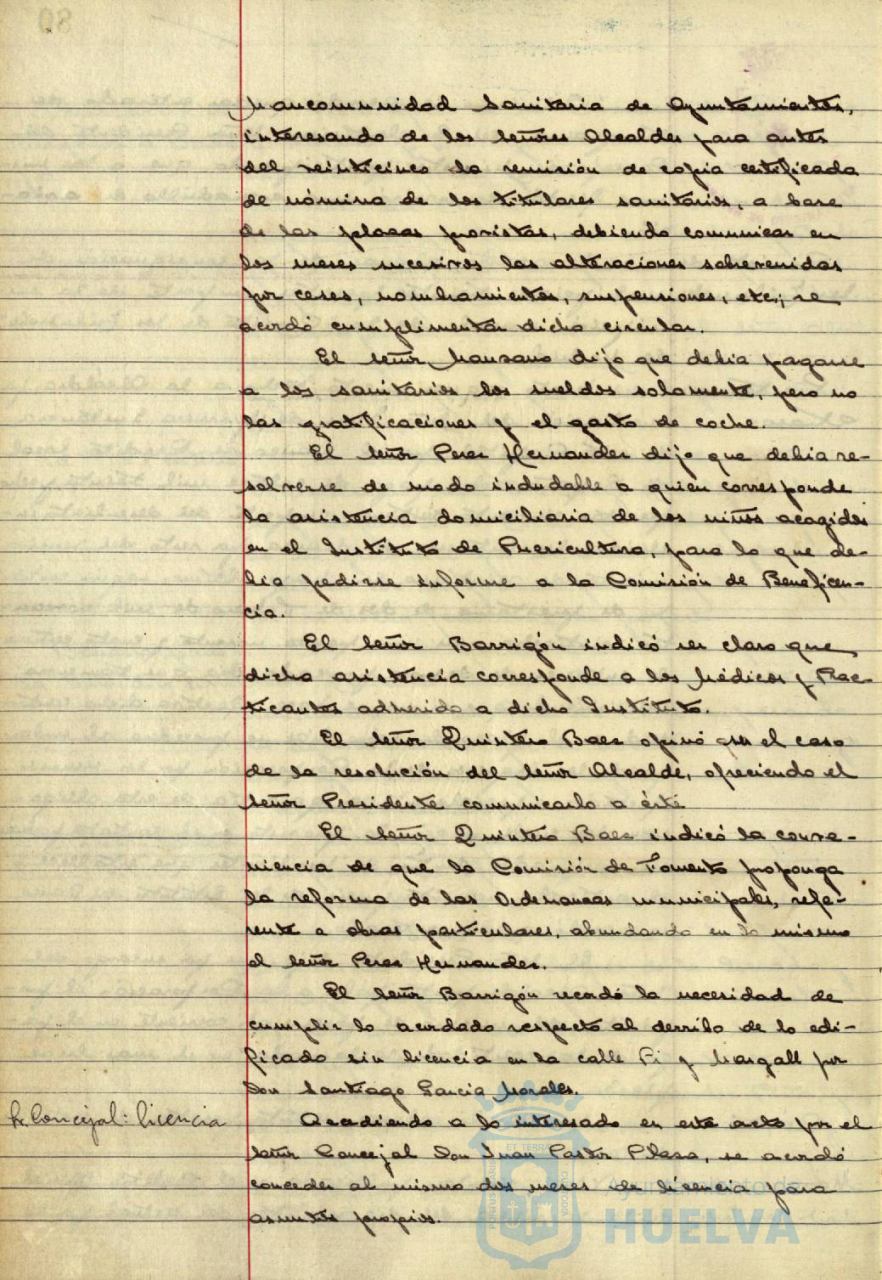 Mancomunidad Sanitaria de Ayuntamientos,
interesando de los señores Alcaldes para antes
del veinticinco la remisión de copia certificada
de nómina de los titulares sanitarios, a base
de las plazas provistas, debiendo comunicar en
los meses sucesivos las alteraciones sobrevenidas
por ceses, nombramientos, suspensiones, etc.; se
acordó cumplimentar dicha circular.
El señor Manzano dijo que debia pagarse
a los sanitarios los sueldos solamente, pero no
las gratificaciones y el gasto de coche.
El señor Perez Hernandez dijo que debia re-
solverse de modo indudable a quien corresponde
la asistencia domiciliaria de los niños acogidos
en el Instituto de Puericultura, para lo que de-
bia pedirse informe a la Comisión de Beneficen-
cia.
El señor Barrigón indicó ser claro que
dicha asistencia corresponde a los Médicos y Prac-
ticantes adherido a dicho Instituto.
El señor Quintero Baez opinó que el caso
de la resolución del señor Alcalde, ofreciendo el
señor Presidente comunicarlo a éste
El señor Quintero Baez indicó la conve-
niencia de que la Comisión de Fomento proponga
la reforma de las Ordenanzas municipales, refe-
rente a obras particulares, abundando en lo mismo
el señor Perez Hernandez.
El señor Barrigón recordó la necesidad de
cumplir lo acordado respecto al derribo de lo edi-
ficado sin licencia en la calle Pi y Margall por
Don Santiago Garcia Morales.
Sr. Concejal: licencia
Accediendo a lo interesado en este acto por el
señor Concejal Don Juan Pastor Plaza, se acordó
conceder al mismo dos meses de licencia para
asuntos propios.
HUELVA